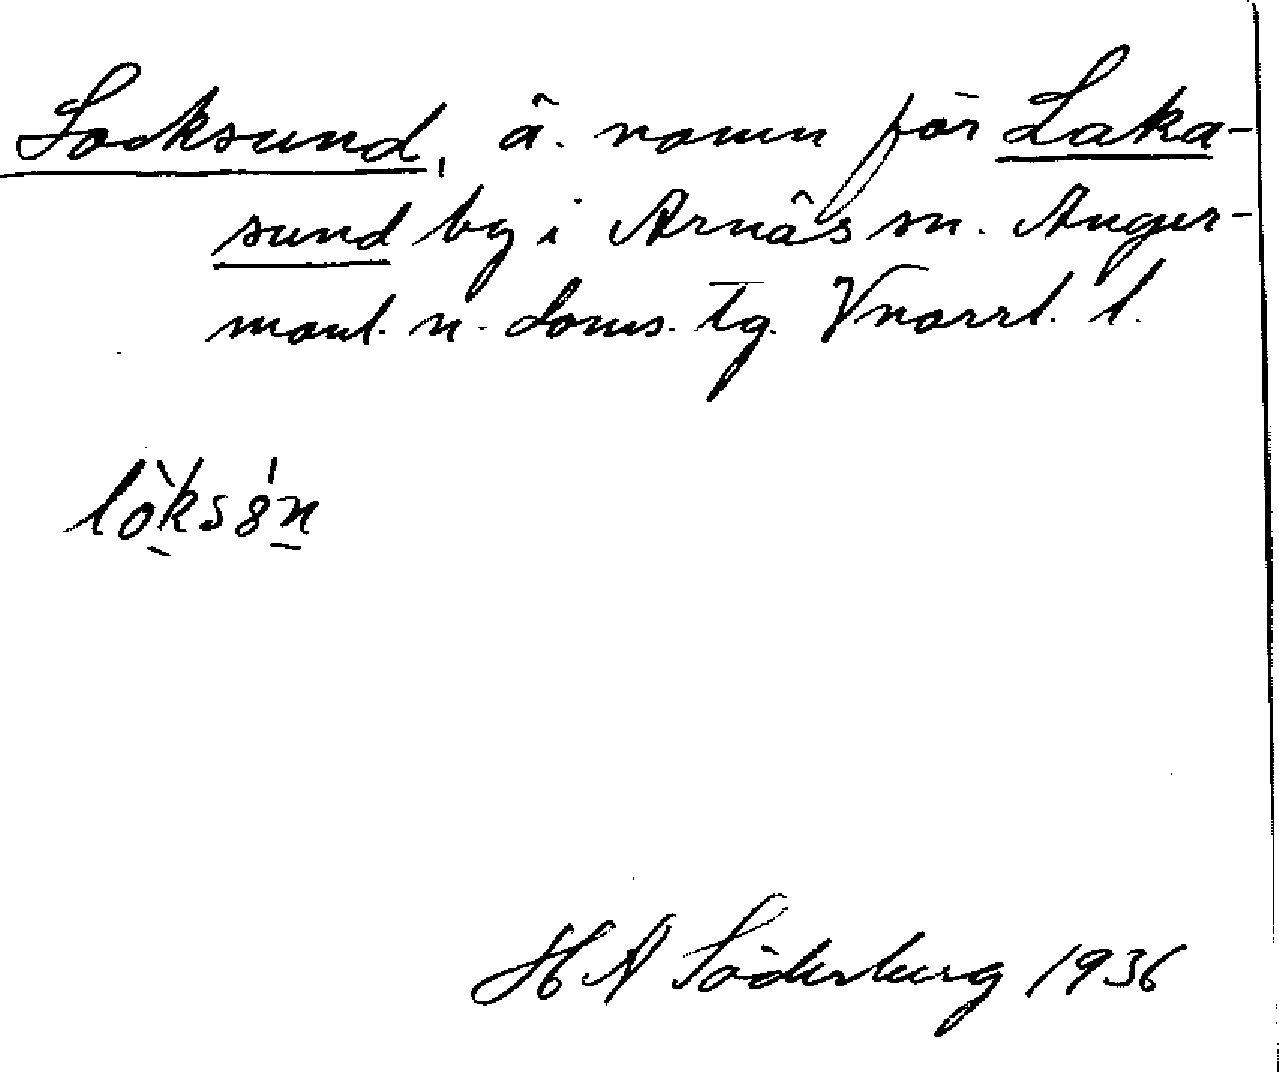 Locksund, ä. namn för Laka-
sund by i Arnäs sn. Ånger-
manl. n. doms. tg. Vnorrl. l.
lòksón
H A Söderberg 1936